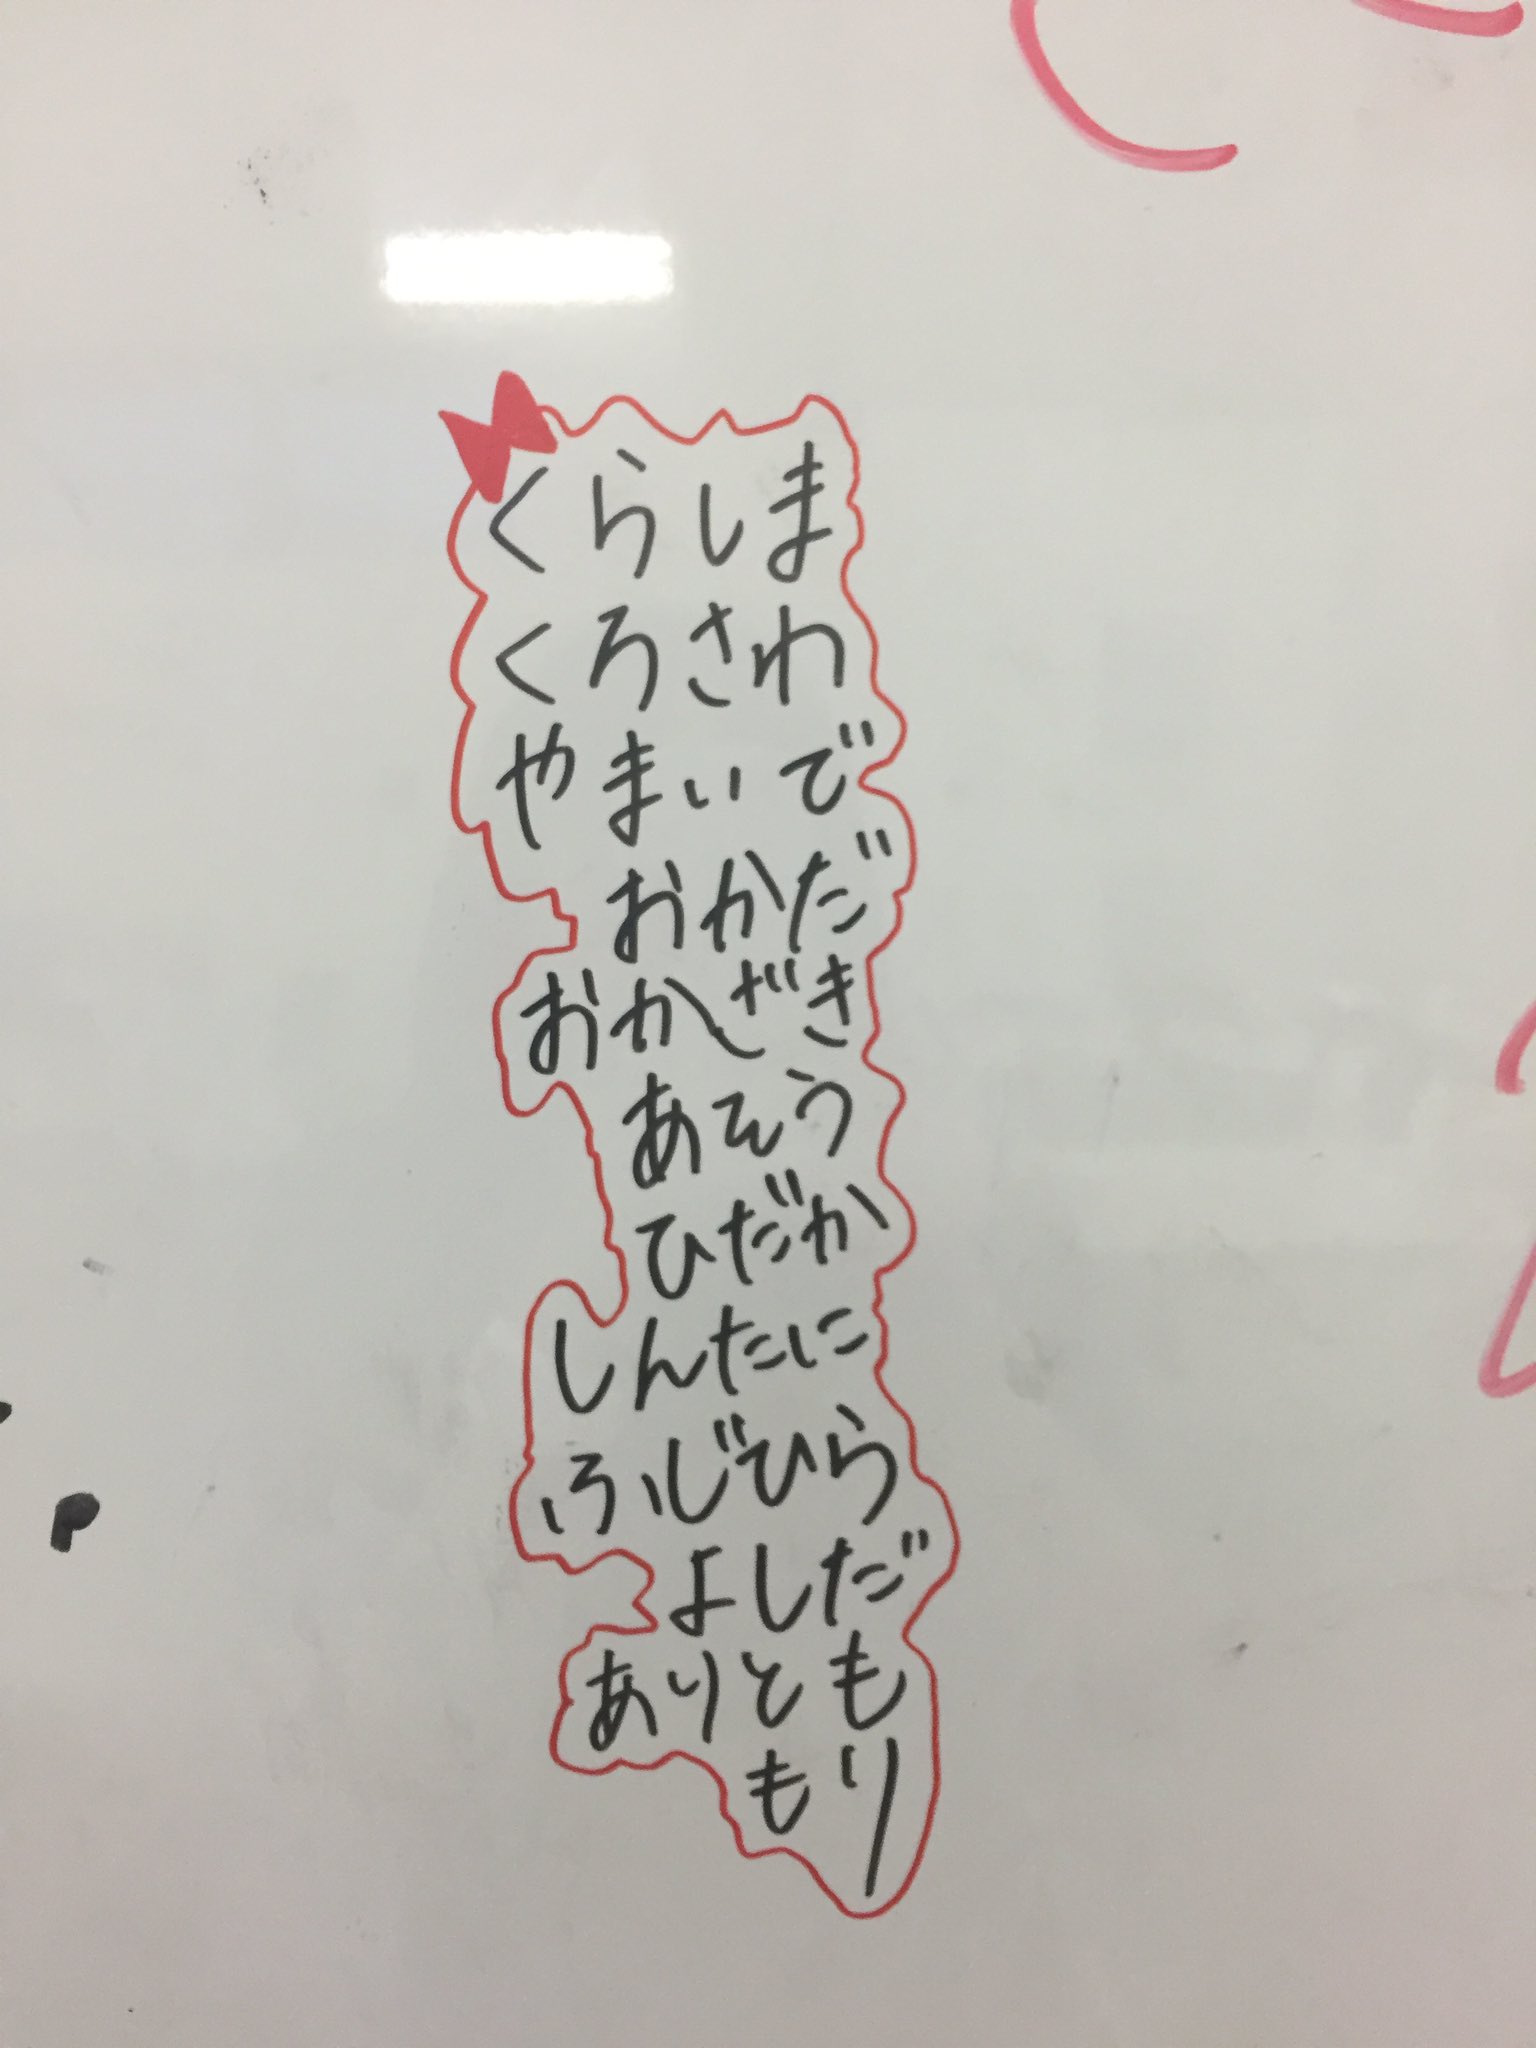 くらしま
くろさわ
やまいで
おかだ
おかざき
あそう
ひだか
しんたに
ふじひら
よしだ
ありとも
もり